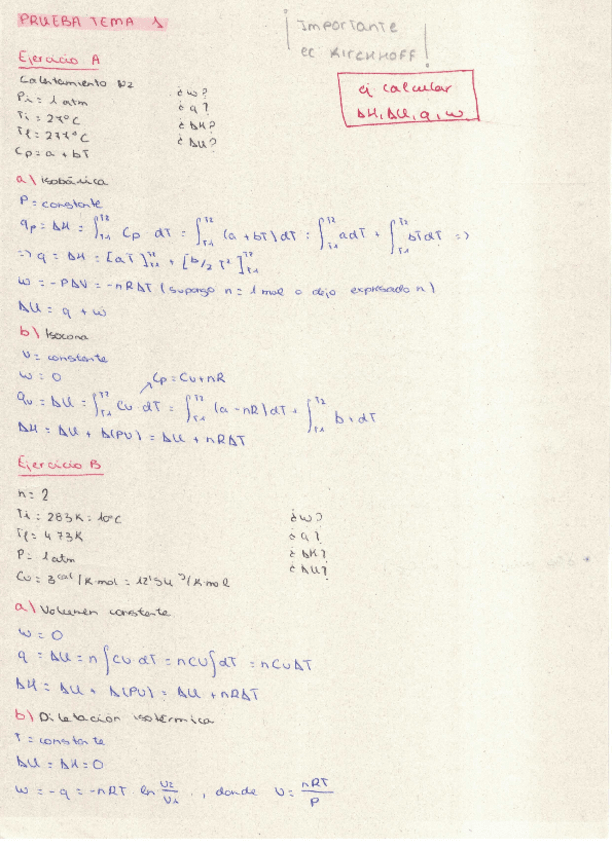 PRUEBA TEMA 1
¡Importante
ec KIRCHHOFF!
Ejercicio A
Calentamiento N2
Pi = 1 atm
Ti = 27ºC
Tf = 277ºC
Cp = a + bT
¿w?
¿q?
¿ΔH?
¿ΔU?
ej calcular
ΔH, ΔU, q, w
a\ Isobárica
P = constante
qp = ΔH = ∫_T1^T2 Cp dT = ∫_T1^T2 (a + bT) dT = ∫_T1^T2 a dT + ∫_T1^T2 bT dT =>
=> q = ΔH = [aT]_T1^T2 + [b/2 T²]_T1^T2
w = -PΔV = -nRΔT (supongo n = 1 mol o dejo expresado n)
ΔU = q + w
b\ Isocora
V = constante
w = 0
Cp = Cv + nR
qv = ΔU = ∫_T1^T2 Cv dT = ∫_T1^T2 (a - nR) dT + ∫_T1^T2 b dT
ΔH = ΔU + Δ(PV) = ΔU + nRΔT
Ejercicio B
n = 2
Ti = 283K = 10ºC
Tf = 473K
P = 1 atm
Cv = 3 cal/K·mol = 12'54 J/K·mol
¿w?
¿q?
¿ΔH?
¿ΔU?
a\ Volumen constante
w = 0
q = ΔU = n∫Cv dT = nCv∫dT = nCvΔT
ΔH = ΔU + Δ(PV) = ΔU + nRΔT
b\ Dilatación isotérmica
T = constante
ΔU = ΔH = 0
w = -q = -nRT ln V2/V1, donde V = nRT/P